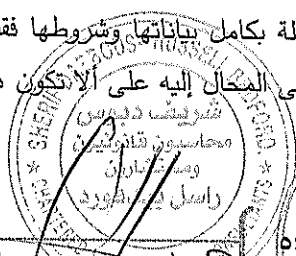 لة بكامل بياناتها وشروطها فقـ
ى المحال إليه على ألا تكون
شريف دبوس
محاسبون قانونيون
ومستشارون
راسل بيدفورد
RUSSELL BEDFORD